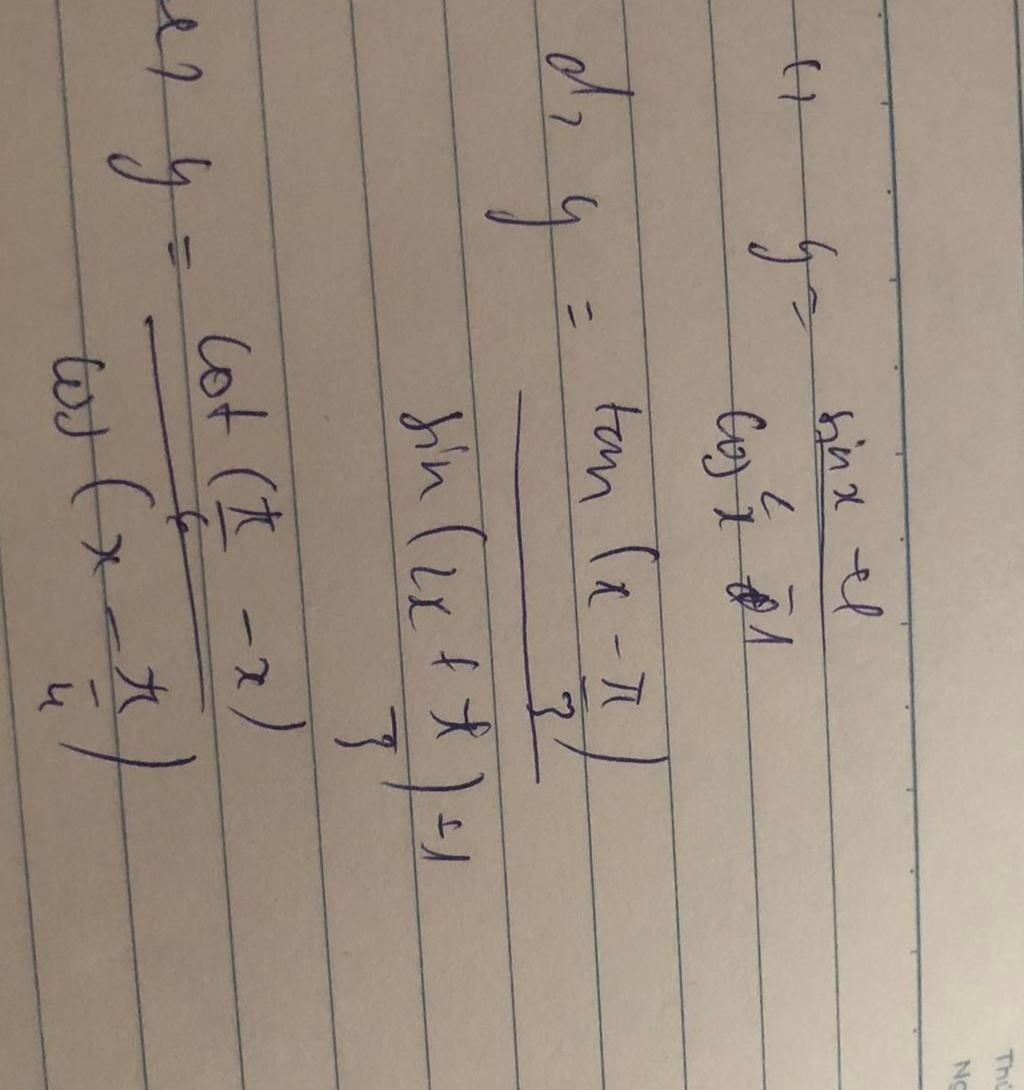 c, y = sin x + 1
cos² x - 1
d, y = tan (x - π/3)
sin (2x + π/3) + 1
e, y = cot (π/4 - x)
cos (x - π/4)